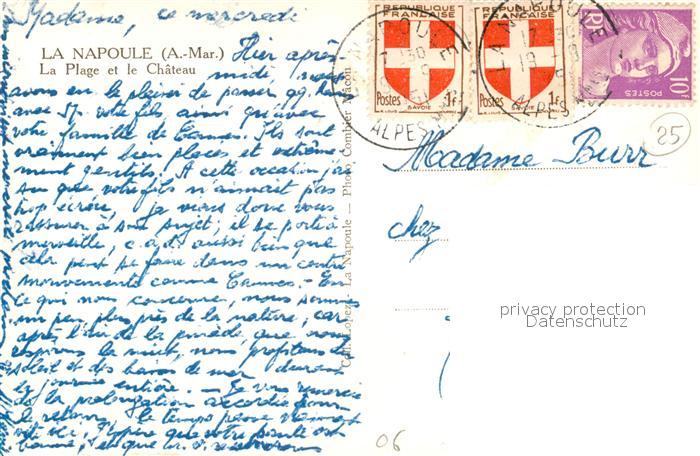 Madame, ce mercredi
LA NAPOULE (A.-Mar.)
La Plage et le Château
Hier après
midi, nous
avons eu le plaisir de passer qq. h.
avec Mr. votre fils, ainsi qu'avec
votre famille de Cannes. Ils sont
vraiment bien placés et extrême-
ment gentils. A cette occasion, j'ai
su que votre fils n'aimait pas
trop écrire, je viens donc vous
rassurer à son sujet; il se porte à
merveille, c.a.d. aussi bien que
cela peut se faire dans un centre
mouvementé comme Cannes. En
ce qui nous concerne, nous sommes
un peu plus près de la nature, car
après l'air de la pinède, que nous
respirons la nuit, nous profitons du
soleil et des bains de mer durant
la journée entière. - Je vous remercie
de la prolongation accordée pour
le retour, le temps passe vraiment
vite ici. J'espère que votre santé est
bonne, et que
Coll. Lopez, La Napoule — Phot. Combier Macon
RÉPUBLIQUE FRANÇAISE
Postes 1F
SAVOIE
RÉPUBLIQUE FRANÇAISE
Postes 1F
SAVOIE
POSTES
10F
ALPES
ALPES
25
Madame Burr
chez
privacy protection
Datenschutz
06